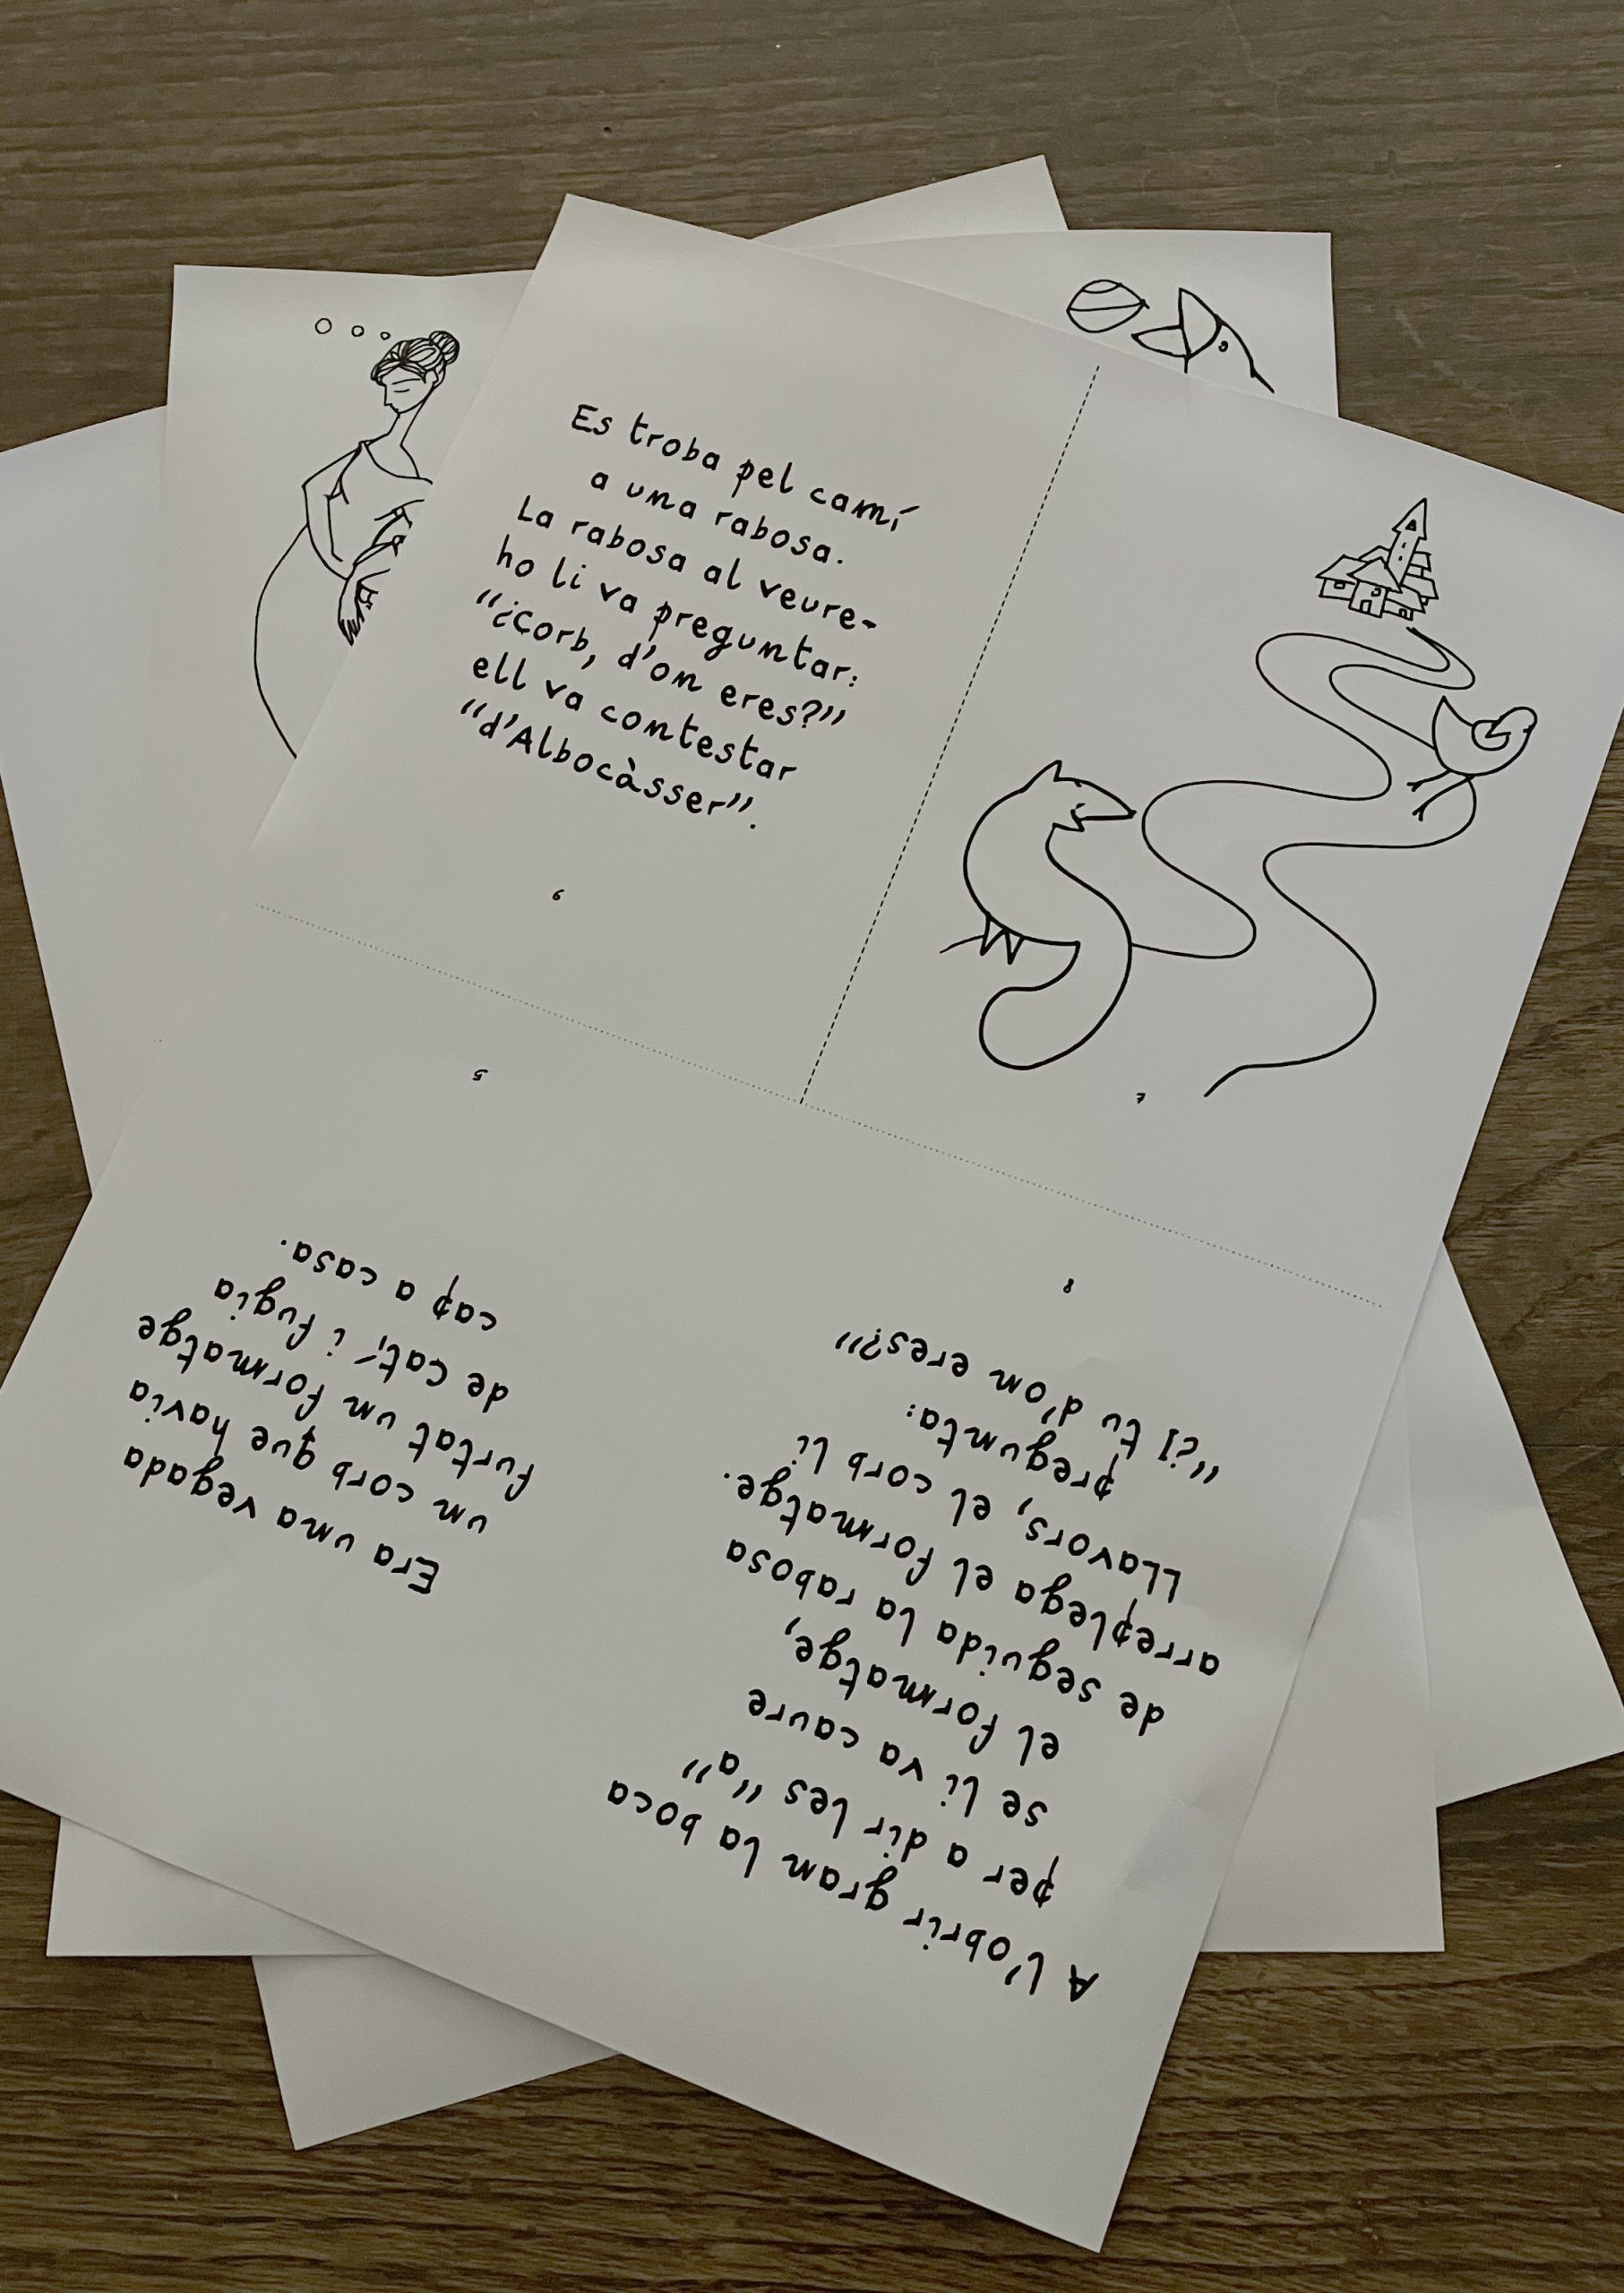 Es troba pel camí
a una rabosa.
La rabosa al veure-
ho li va preguntar:
“¿Corb, d'on eres?”
ell va contestar
“d'Albocàsser”.
6
7
5
Era una vegada
un corb que havia
furtat un formatge
de catí i fugia
cap a casa.
8
A l'obrir gran la boca
per a dir les “a”
se li va caure
el formatge,
de seguida la rabosa
arreplega el formatge.
Llavors, el corb li
pregunta:
“¿I tu d'on eres?”